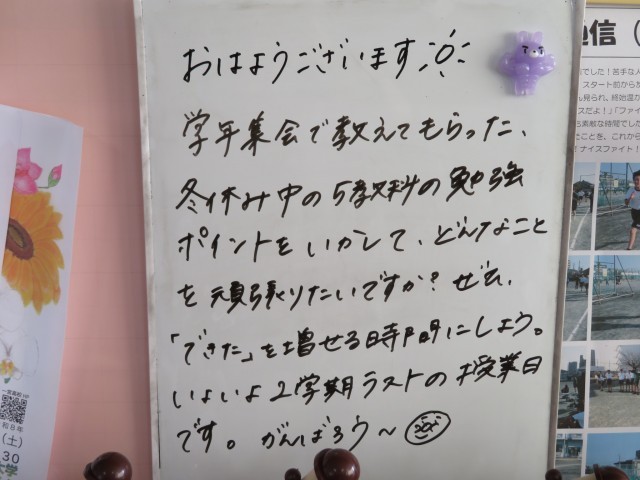 おはようございます
学年集会で教えてもらった、
冬休み中の5教科の勉強
ポイントをいかして、どんなこと
を頑張りたいですか？ぜひ、
「できた」を増せる時間にしよう。
いよいよ2学期ラストの授業日
です。がんばろう〜
通信（
でした！苦手な人
スタート前から
も見られ、終始
スだよ！」「ファイ
素敵な時間でした
たことを、これから
ナイスファイト！
和8年
（土）
30
大学